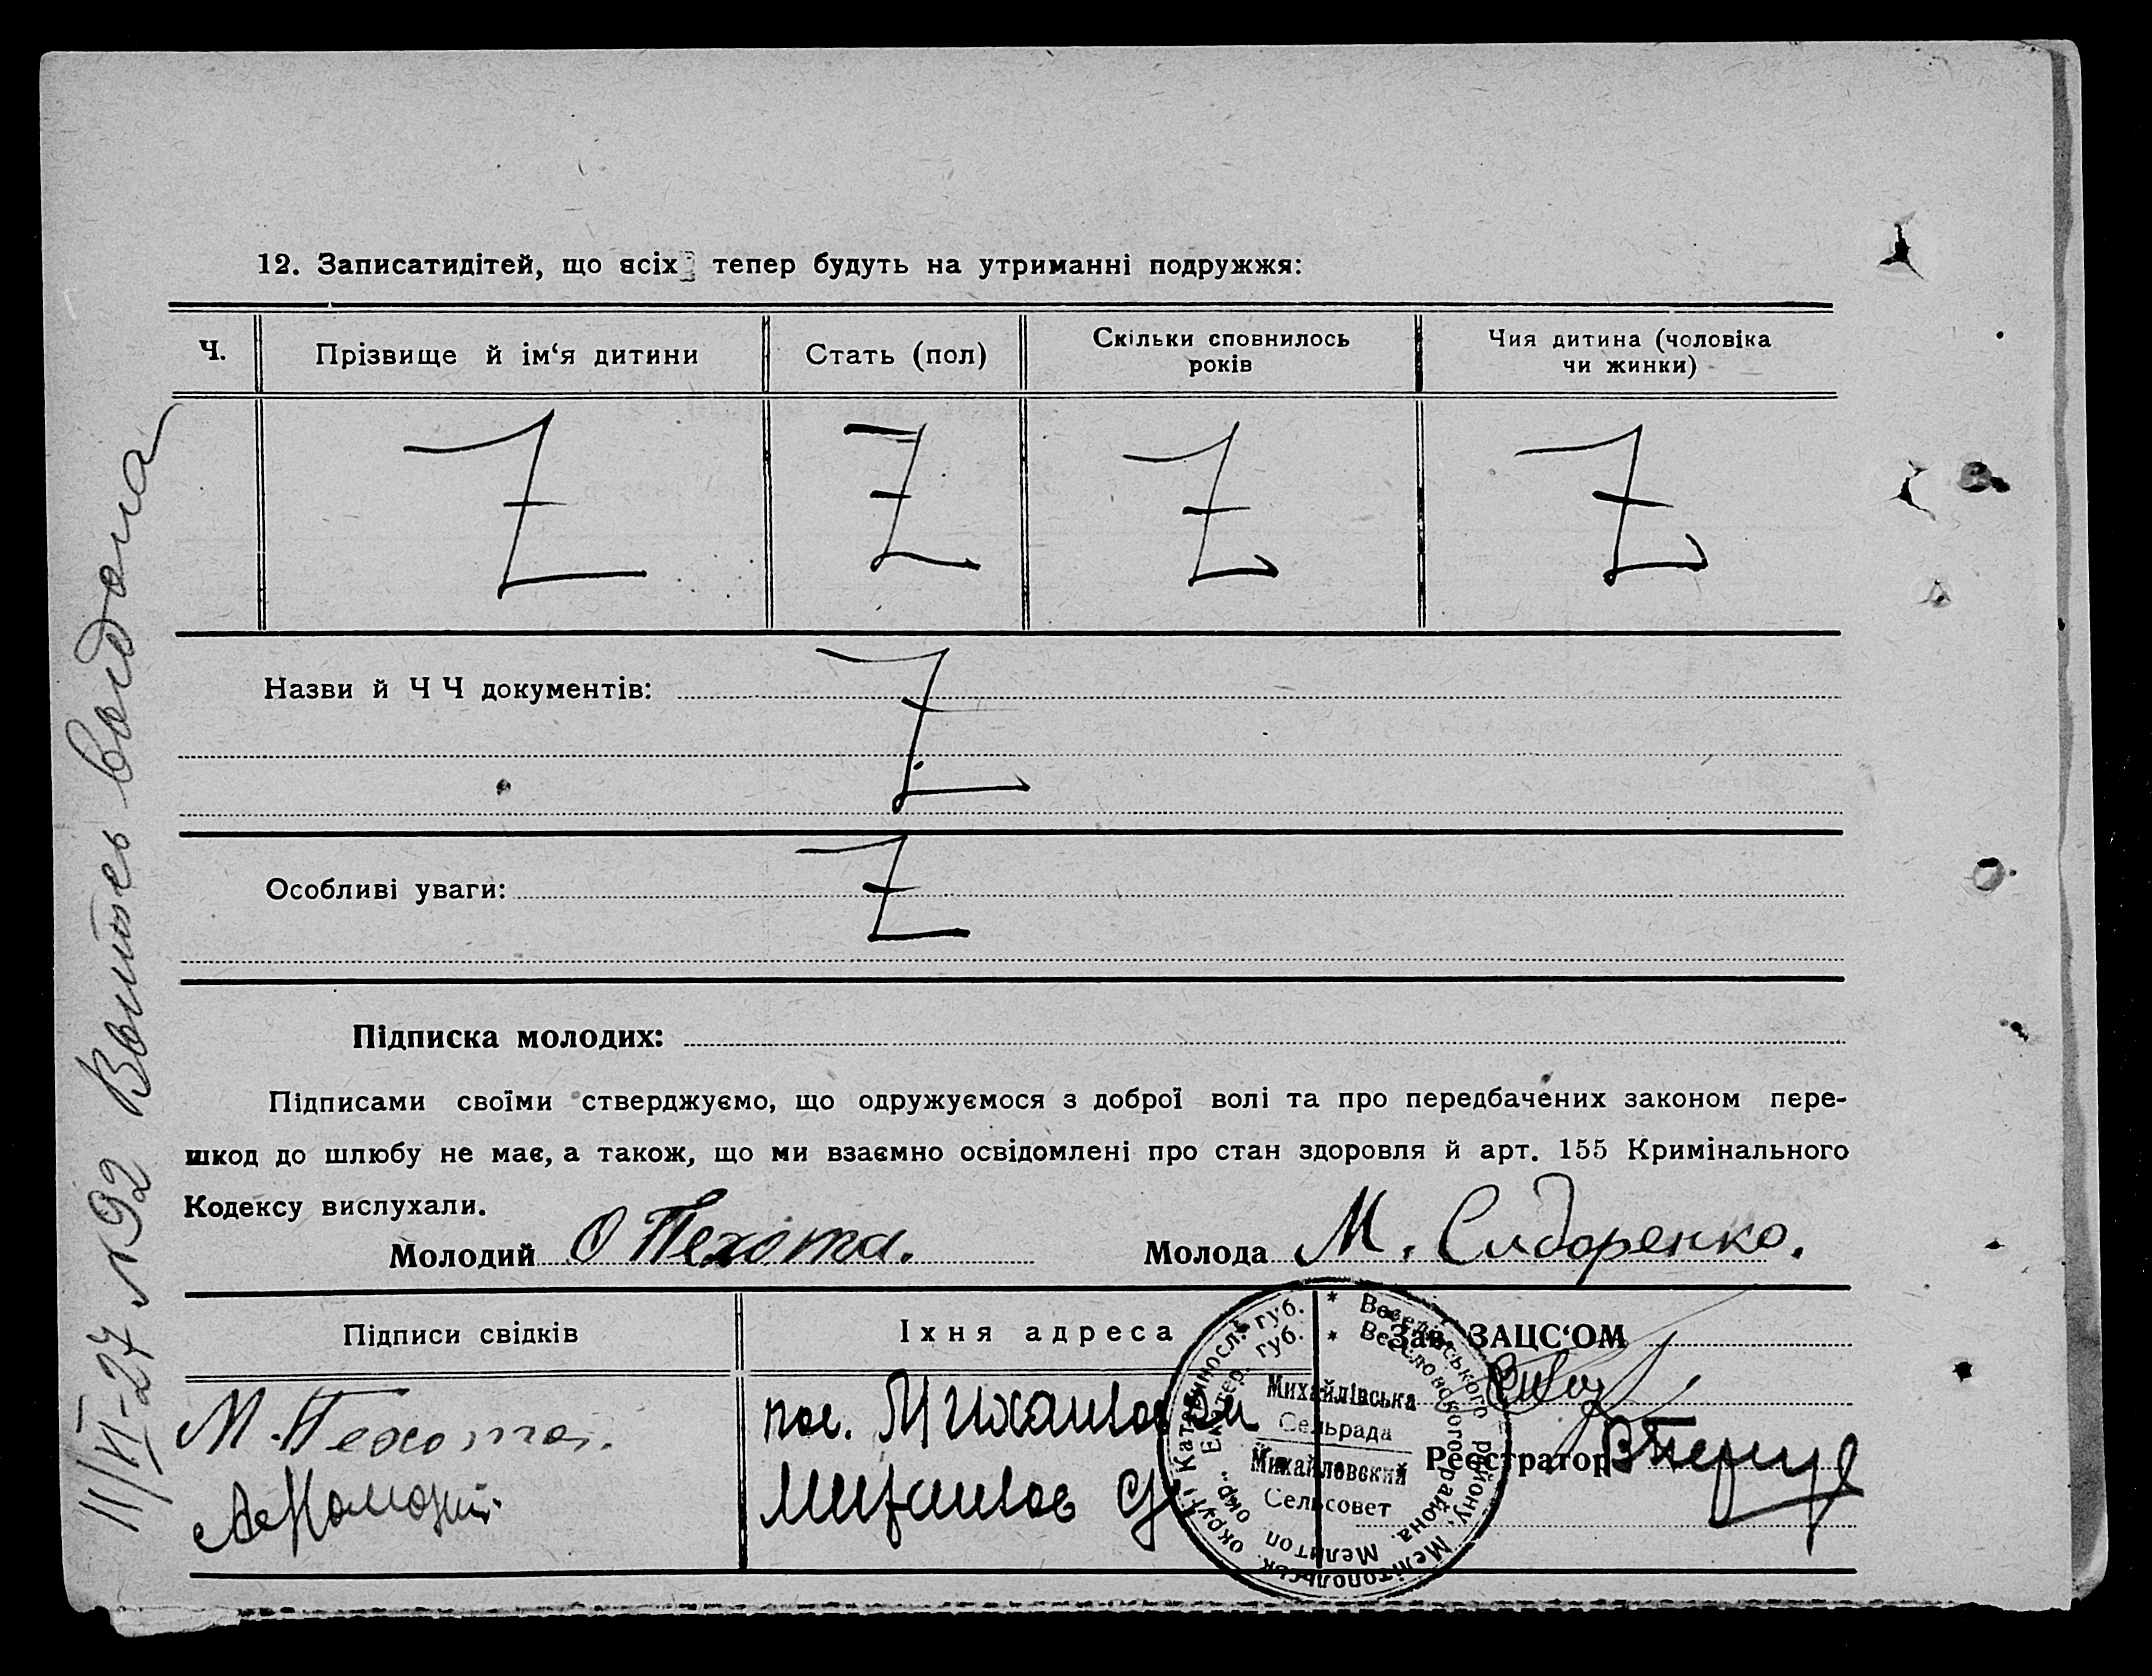 12. Записатидітей, що всіх тепер будуть на утриманні подружжя:
Ч.
Прізвище й ім‘я дитини
Стать (пол)
Скільки сповнилось
років
Чия дитина (чоловіка
чи жинки)
Z Z Z Z
Назви й Ч Ч документів:
Z
Особливі уваги:
Z
Підписка молодих:
Підписами своїми стверджуємо, що одружуємося з доброї волі та про передбачених законом пере-
шкод до шлюбу не має, а також, що ми взаємно освідомлені про стан здоровля й арт. 155 Кримінального
Кодексу вислухали.
Молодий О Пехота.
Молода М. Сидоренко.
Підписи свідків
Їхня адреса
Зав. ЗАЦС‘ОМ
М. Пехота.
пос. Михайловка
Реєстратор
* Веселівського району, Мелітопольськ. округи Катеринослав. губ.
* Веселовского района. Мелитоп. окр. Екатер. губ.
Михайлівська
Сельрада
Михайловский
Сельсовет
11/VI-27 №92 Выпись выдана